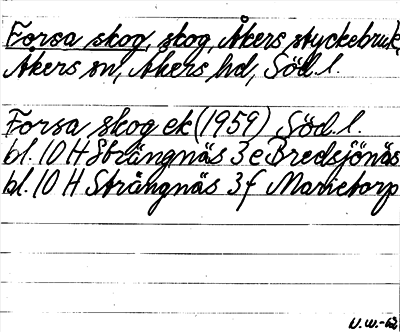 Forsa skog, skog, Åkers styckebruk,
Åkers sn, Åkers hd, Söd. l.
Forsa skog ek (1959) Söd. l.
bl. 10 H Strängnäs 3 e Bredsjönäs
bl. 10 H Strängnäs 3 f Marietorp
V.W.-62